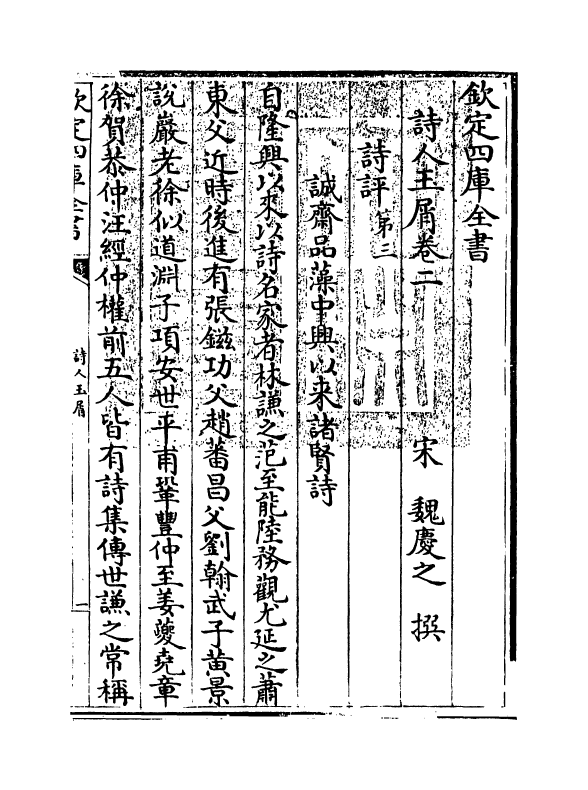 欽定四庫全書
詩人玉屑卷二
宋 魏慶之 撰
詩評第三
誠齋品藻中興以来諸賢詩
自隆興以來以詩名家者林謙之范至能陸務觀尤延之蕭
東父近時後進有張鎡功父趙蕃昌父劉翰武子黄景
說巖老徐似道淵子項安世平甫鞏豐仲至姜夔堯章
徐賀恭仲汪經仲權前五人皆有詩集傳世謙之常稱
欽定四庫全書
詩人玉屑
一